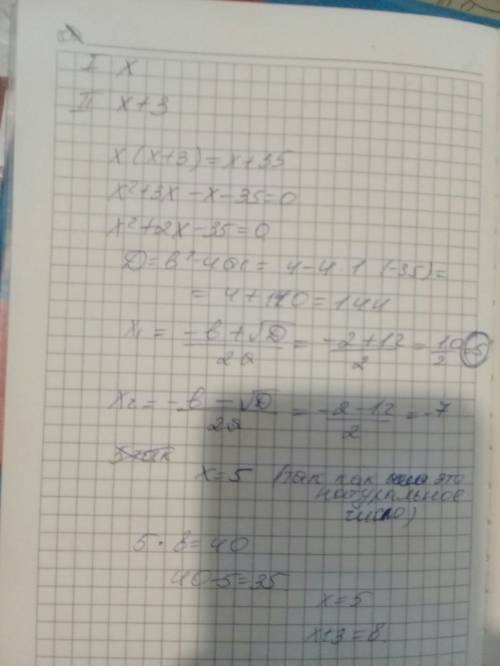 I x
II x+3
x(x+3)=x+35
x²+3x-x-35=0
x²+2x-35=0
D=b²-4ac= 4-4·1·(-35)=
= 4+140=144
x₁ = (-b+√D)/2a = (-2+12)/2 = 10/2 = 5
x₂ = (-b-√D)/2a = (-2-12)/2 = -7
x=5 (так как это
натуральное
число)
5·8=40
40-5=35
x=5
x+3=8